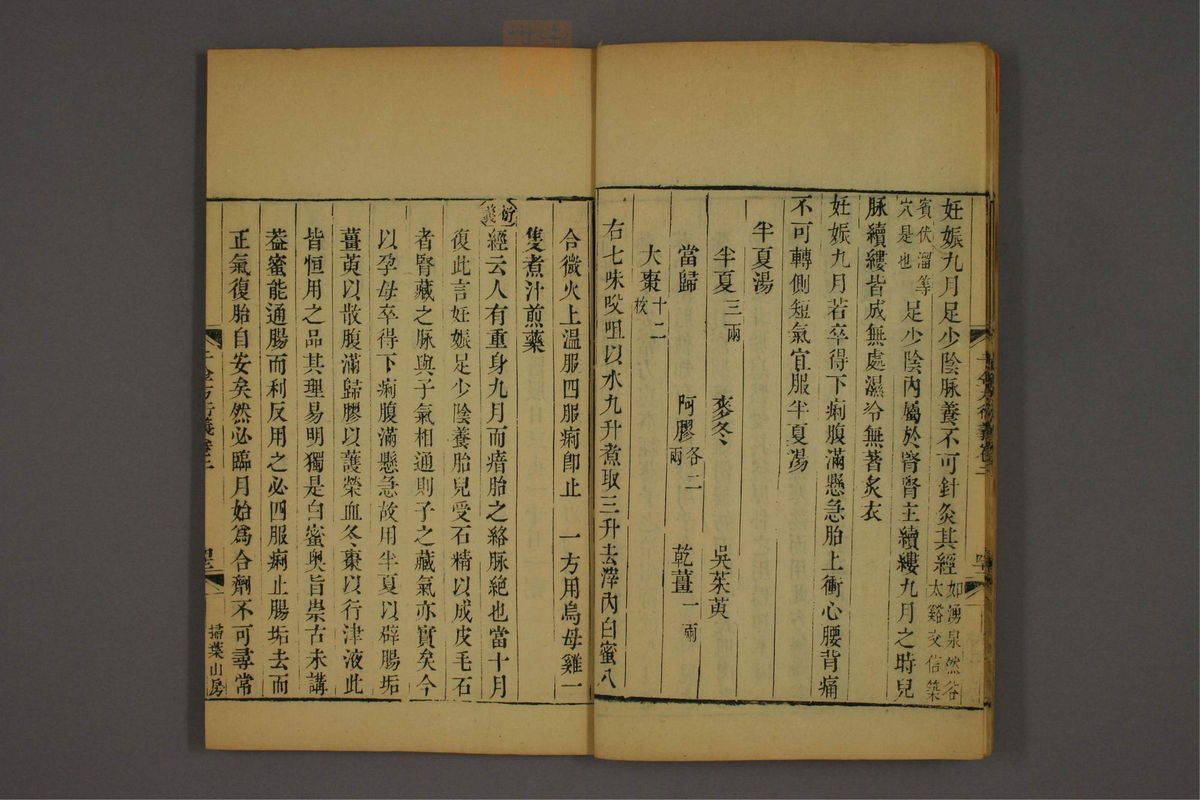 妊娠九月足少陰脉養不可針灸其經如湧泉然谷太谿交信築
賓伏溜等穴是也足少陰內屬於腎腎主續縷九月之時兒
脉續縷皆成無處濕冷無著炙衣
妊娠九月若卒得下痢腹滿懸急胎上衝心腰背痛
不可轉側短氣宜服半夏湯
半夏湯
半夏三兩 麥冬 吳茱萸
當歸 阿膠各二兩 乾薑一兩
大棗十二枚
右七味㕮咀以水九升煮取三升去滓內白蜜八
合微火上溫服四服痢卽止 一方用烏母雞一
隻煮汁煎藥
衍義 經云人有重身九月而瘖胎之絡脉絕也當十月
復此言妊娠足少陰養胎兒受石精以成皮毛石
者腎藏之脉與子氣相通則子之藏氣亦實矣今
以孕母卒得下痢腹滿懸急故用半夏以辟腸垢
薑萸以散腹滿歸膠以護榮血冬棗以行津液此
皆恒用之品其理易明獨是白蜜奧旨崇古未講
葢蜜能通腸而利反用之必四服痢止腸垢去而
正氣復胎自安矣然必臨月始爲合劑不可尋常
千金方衍義卷二
掃葉山房